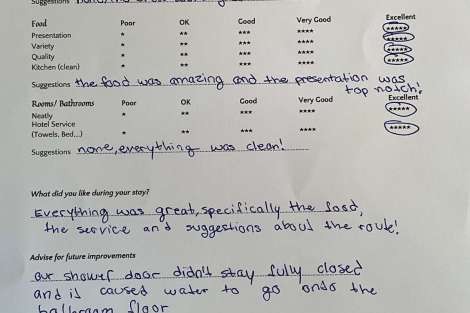 Suggestions
Food Poor OK Good Very Good Excellent
Presentation * ** *** **** *****
Variety * ** *** **** *****
Quality * ** *** **** *****
Kitchen (clean) * ** *** **** *****
Suggestions the food was amazing and the presentation was
top notch!
Rooms/ Bathrooms Poor OK Good Very Good Excellent
Neatly * ** *** **** *****
Hotel Service
(Towels, Bed...) * ** *** **** *****
Suggestions none, everything was clean!
What did you like during your stay?
Everything was great, specifically the food,
the service and suggestions about the route!
Advise for future improvements
our shower door didn't stay fully closed
and it caused water to go onto the
floor